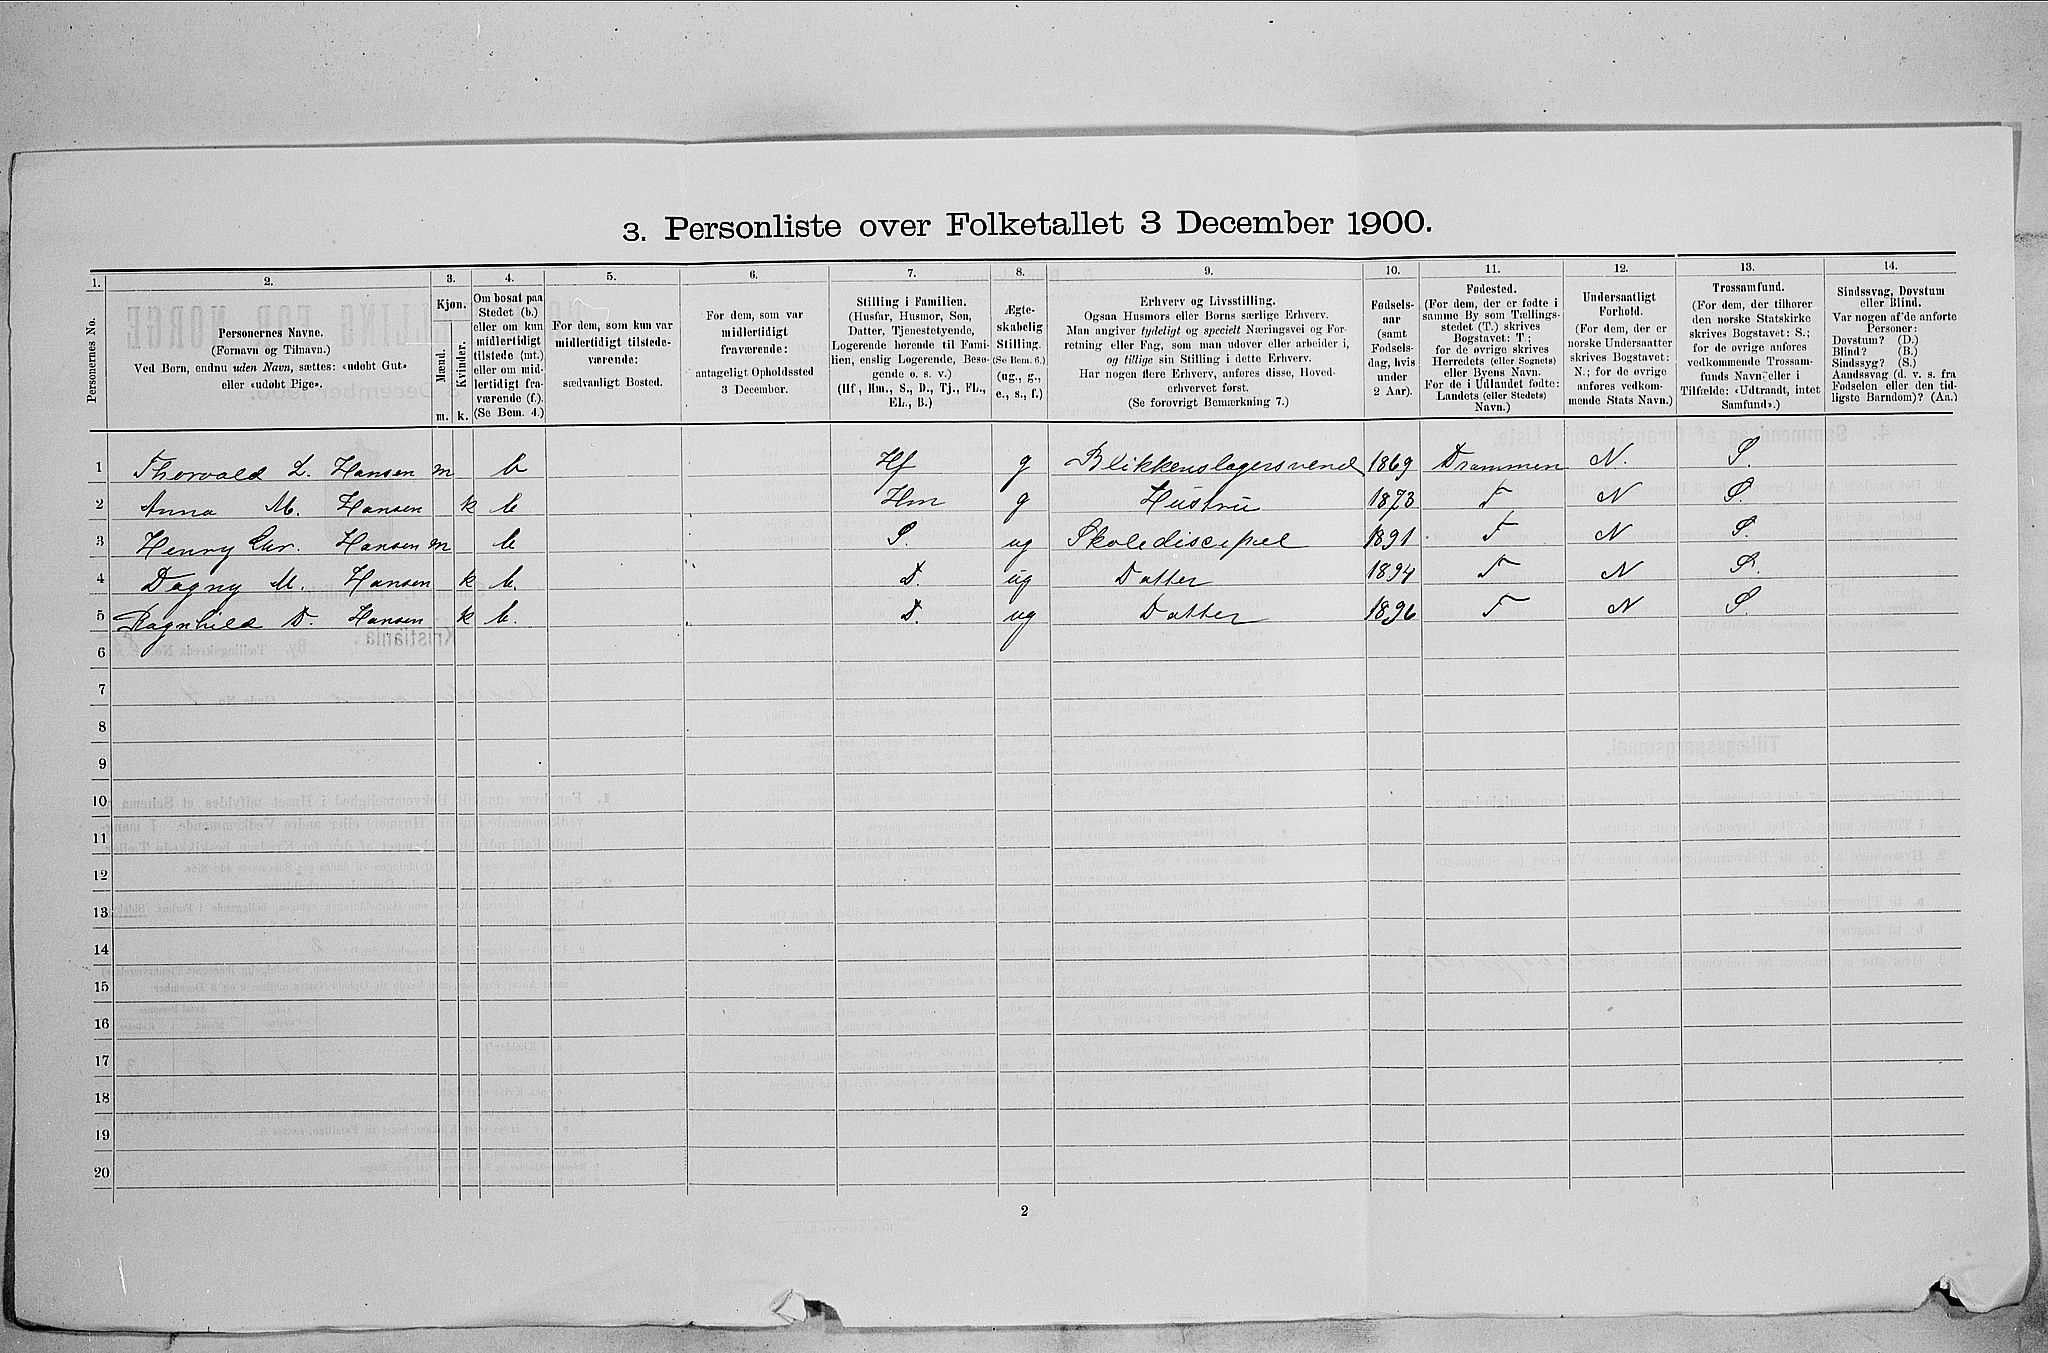 3. Personliste over Folketallet 3 December 1900.
1. 2. 3. 4. 5. 6. 7. 8. 9. 10. 11. 12. 13. 14.
Personernes No.
Personernes Navne.
(Fornavn og Tilnavn.)
Ved Børn, endnu uden Navn, sættes: «udøbt Gut»
eller «udøbt Pige».
Kjøn.
Mænd.
Kvinder.
m. k.
Om bosat paa
Stedet (b.)
eller om kun
midlertidigt
tilstede (mt.)
eller om mid-
lertidigt fra-
værende (f.).
(Se Bem. 4.)
For dem, som kun var
midlertidigt tilstede-
værende:
sædvanligt Bosted.
For dem, som var
midlertidigt
fraværende:
antageligt Opholdssted
3 December.
Stilling i Familien.
(Husfar, Husmor, Søn,
Datter, Tjenestetyende,
Logerende hørende til Fami-
lien, enslig Logerende, Besø-
gende o. s. v.)
(Hf, Hm., S., D., Tj., FL.,
EL., B.)
Ægte-
skabelig
Stilling.
(Se Bem. 6.)
(ug., g.,
e., s., f.)
Erhverv og Livsstilling.
Ogsaa Husmors eller Børns særlige Erhverv.
Man angiver tydeligt og specielt Næringsvei og For-
retning eller Fag, som man udøver eller arbeider i,
og tillige sin Stilling i dette Erhverv.
Har nogen flere Erhverv, anføres disse, Hoved-
erhvervet først.
(Se forøvrigt Bemærkning 7.)
Fødsels-
aar
(samt
Fødsels-
dag, hvis
under
2 Aar).
Fødested.
(For dem, der er fødte i
samme By som Tællings-
stedet (T.) skrives
Bogstavet: T;
for de øvrige skrives
Herredets (eller Sognets)
eller Byens Navn.
For de i Udlandet fødte:
Landets (eller Stedets)
Navn.)
Undersaatligt
Forhold.
(For dem, der er
norske Undersaatter
skrives Bogstavet:
N.; for de øvrige
anføres vedkom-
mende Stats Navn.)
Trossamfund.
(For dem, der tilhører
den norske Statskirke
skrives Bogstavet: S.;
for de øvrige anføres
vedkommende Trossam-
funds Navn, eller i
Tilfælde: «Udtraadt, intet
Samfund».)
Sindssvag, Døvstum
eller Blind.
Var nogen af de anførte
Personer:
Døvstum? (D.)
Blind? (B.)
Sindssyg? (S.)
Aandssvag (d. v. s. fra
Fødselen eller den tid-
ligste Barndom)? (Aa.)
1 Thorvald L. Hansen m b Hf g Blikkenslagersvend 1869 Drammen N. S.
2 Anna M. Hansen k b Hm g Hustru 1873 T N S.
3 Henry Chr. Hansen m b S. ug Skolediscipel 1891 T N S.
4 Dagny M. Hansen k b. D. ug Datter 1894 T N S.
5 Ragnhild D. Hansen k b. D. ug Datter 1896 T N S.
6
7
8
9
10
11
12
13
14
15
16
17
18
19
20
2